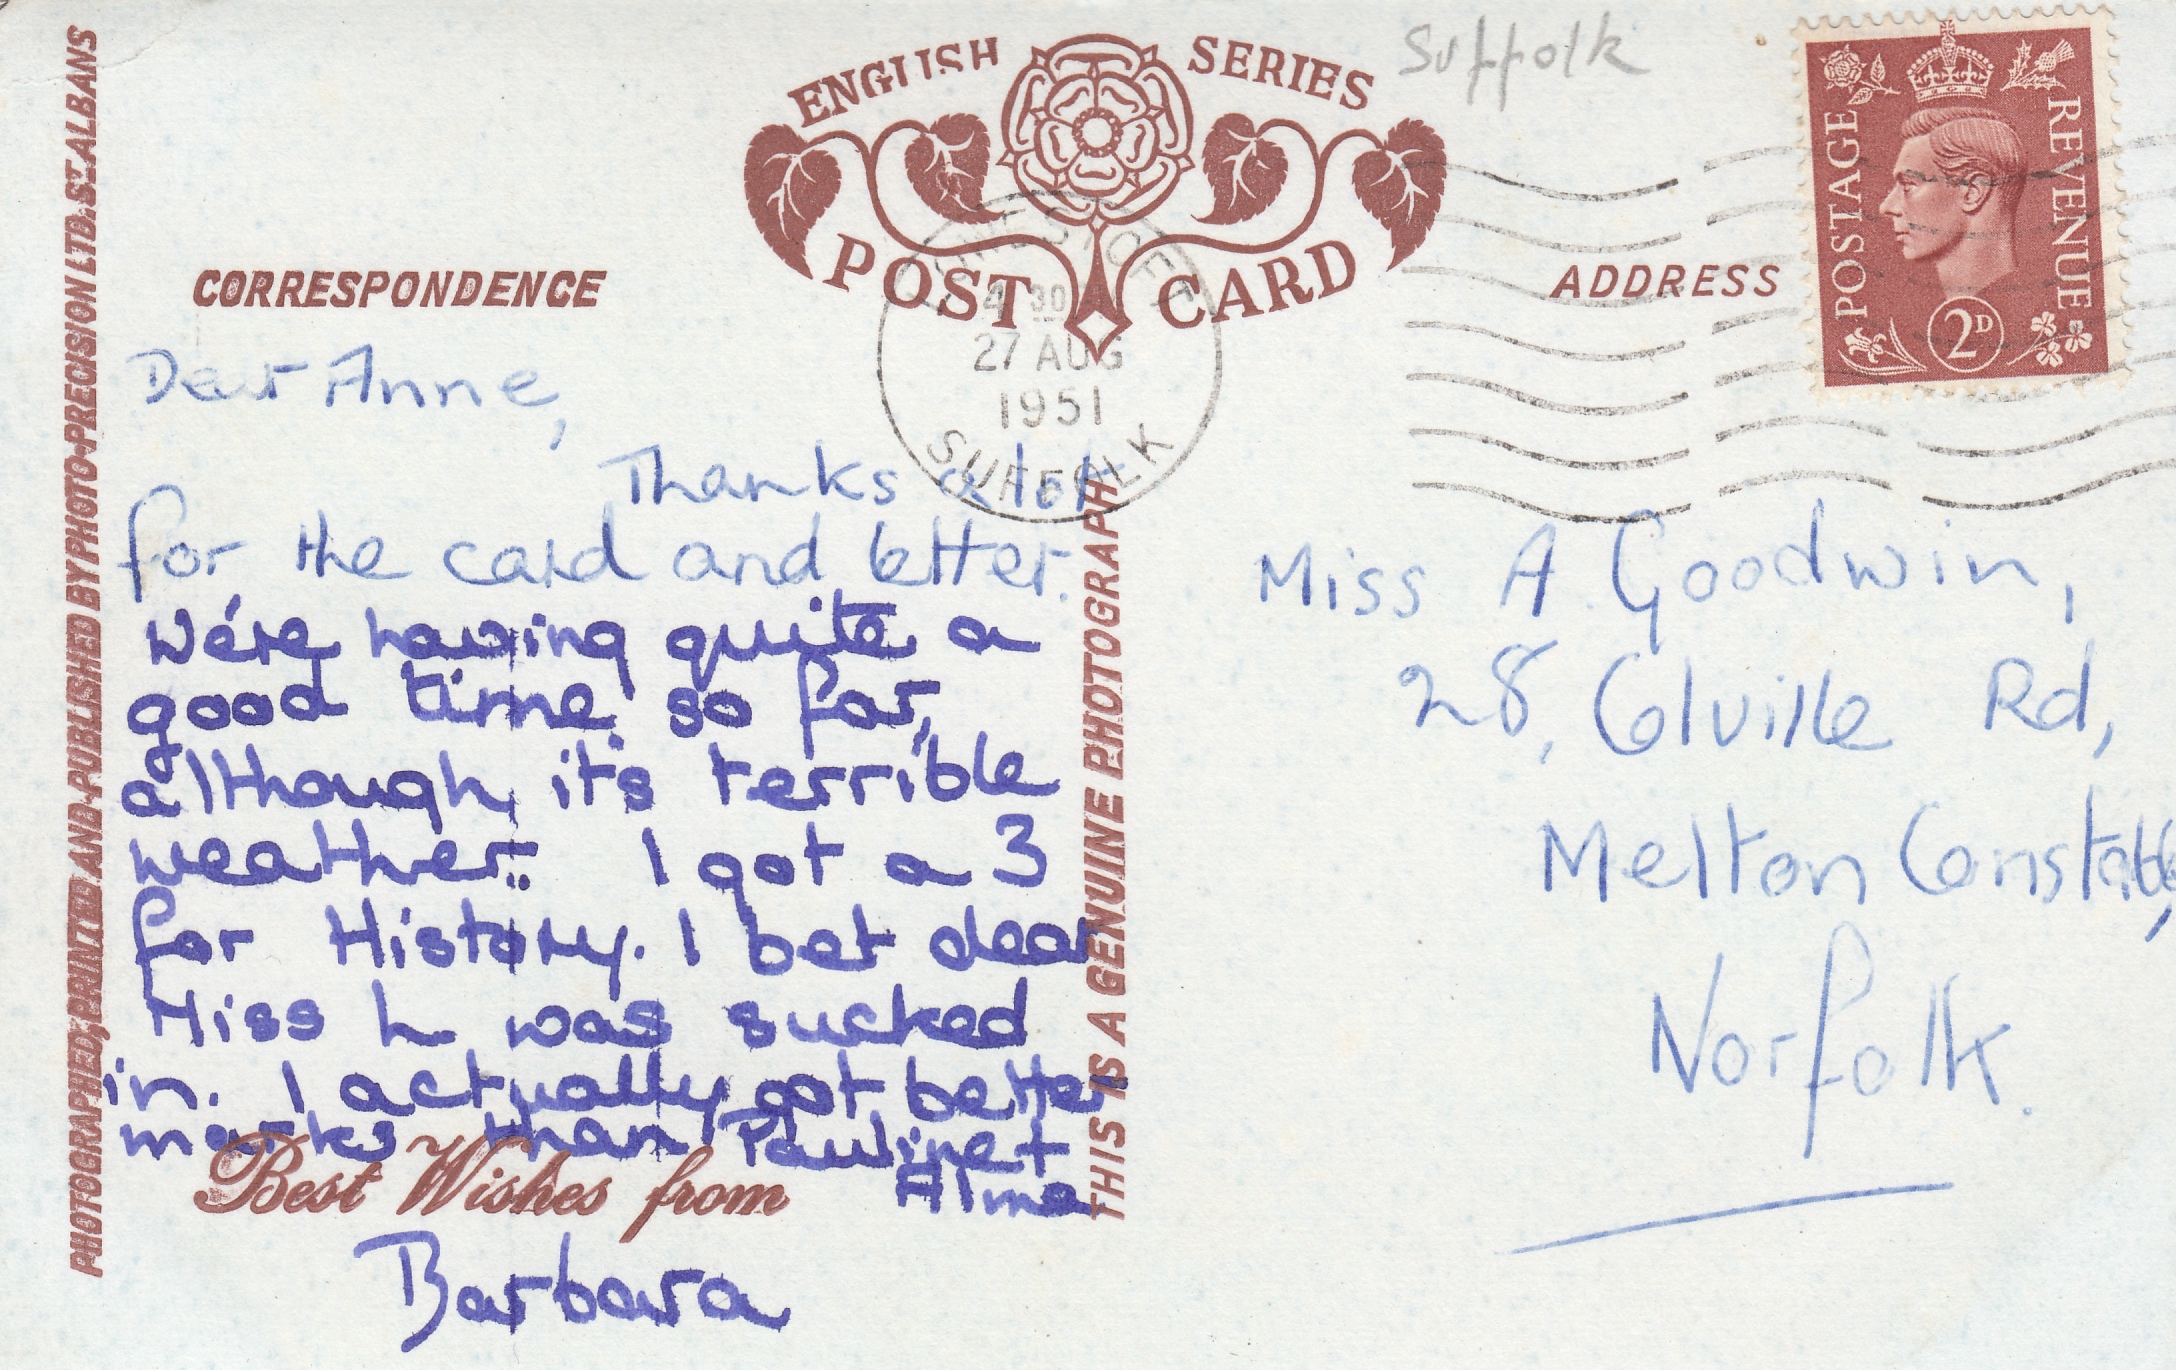 PHOTOGRAPHED, PRINTED AND PUBLISHED BY PHOTO-PRECISION LTD. ST. ALBANS
ENGLISH SERIES
POST CARD
Suffolk
POSTAGE REVENUE
2D
CORRESPONDENCE
ADDRESS
30
27 AUG
1951
SUFFOLK
Dear Anne,
Thanks a lot
for the card and letter.
We're having quite a
good time so far,
although it's terrible
weather. I got a 3
for History. I bet dear
Miss L was sucked
in. I actually got better
marks than Pauline +
Alma
Best Wishes from
Barbara
THIS IS A GENUINE PHOTOGRAPH
Miss A Goodwin,
28, Colville Rd,
Melton Constable,
Norfolk.